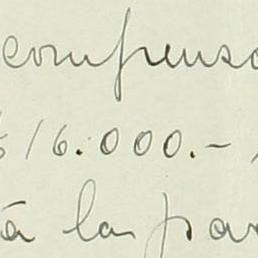 compenso
16.000.-,
à la par